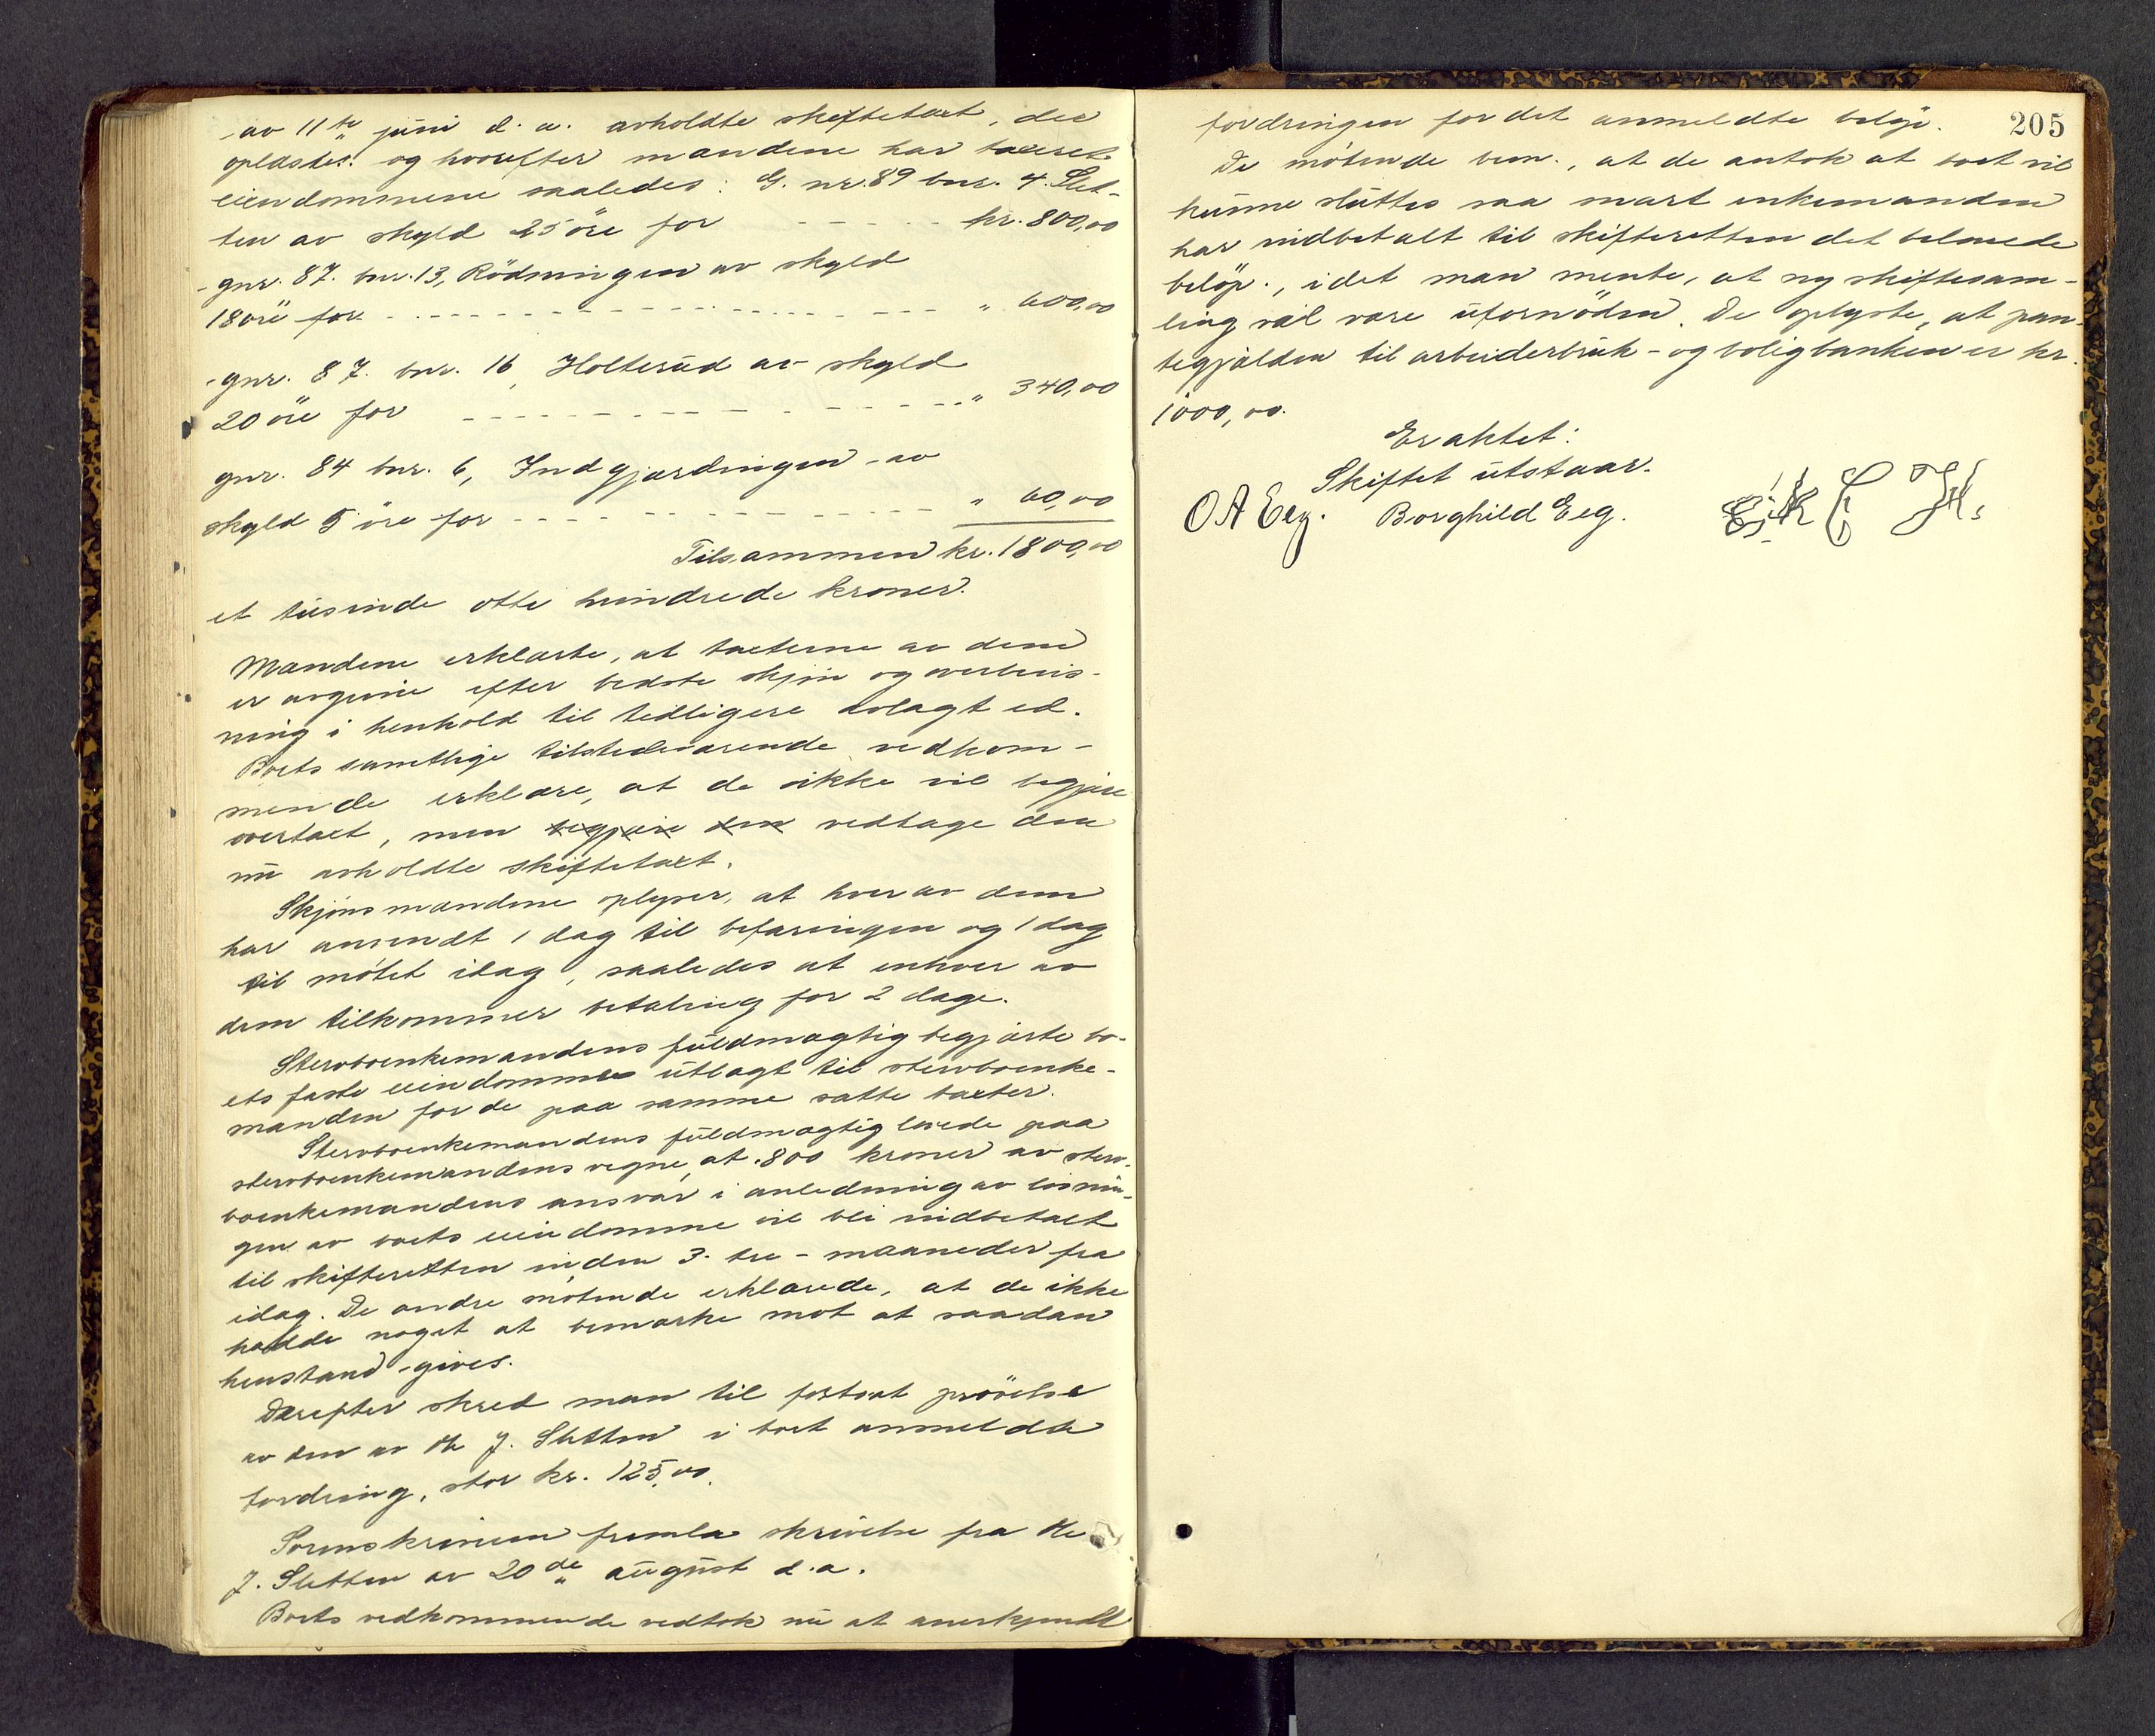 av 11te juni d. a. avholdte skiftetaxt, der
oplæstes. og hvorefter mændene har taxeret
eiendommene saaledes: G. nr. 89 bnr. 4. Slet-
ten av skyld 25 öre for - - - - - kr. 800,00
gnr. 87. bnr. 13, Rödningen av skyld
18 öre for - - - - - - - - - - - „ 600,00
gnr. 87. bnr. 16, Holterud av skyld
20 öre for - - - - - - - - - - - „ 340,00
gnr. 84 bnr. 6, Indgjærdingen av
skyld 5 öre for - - - - - - - - - „ 60,00
Tilsammen kr. 1800,00
et tusinde otte hundrede kroner.
Mændene erklærte, at taxterne av dem
er avgivne efter bedste skjön og overbevis-
ning i henhold til tidligere avlagt ed.
Boets samtlige tilstedeværende vedkom-
mende erklære, at de ikke vil begjære
overtaxt, men begjære den vedtage den
nu avholdte skiftetaxt.
Skjönsmændene oplyser, at hver av dem
har anvendt 1 dag til befaringen og 1 dag
til mötet idag, saaledes at enhver av
dem tilkommer betaling for 2 dage.
Stervboenkemandens fuldmægtig begjærte bo-
ets faste eiendomme utlagt til stervboenke-
manden for de paa samme satte taxter.
Stervboenkemandens fuldmægtig lovede paa
stervboenkemandens vegne, at 800 kroner av sterv-
boenkemandens ansvar i anledning av lösnin-
gen av boets eiendomme vil bli indbetalt
til skifteretten inden 3 - tre - maaneder fra
idag. De andre mötende erklærede, at de ikke
hadde noget at bemærke mot at saadan
henstand gives.
Derefter skred man til fortsat prövelse
av den av He J. Sletten i boet anmeldte
fordring, stor kr. 125,00.
Sorenskriveren fremla skrivelse fra He
J. Sletten av 20de august d. a.
Boets vedkommende vedtok nu at anerkjende
205
fordringen for det anmeldte belöp.
De mötende bem., at de antok at boet vil
kunne sluttes saa snart enkemanden
har indbetalt til skifteretten det belovede
belöp., idet man mente, at ny skiftesam-
ling vil være ufornöden. De oplyste, at pan-
tegjælden til arbeiderbruk- og boligbanken er kr.
1000,00.
Eraktet:
Skiftet utstaar.
O A Eeg. Borghild Eeg.